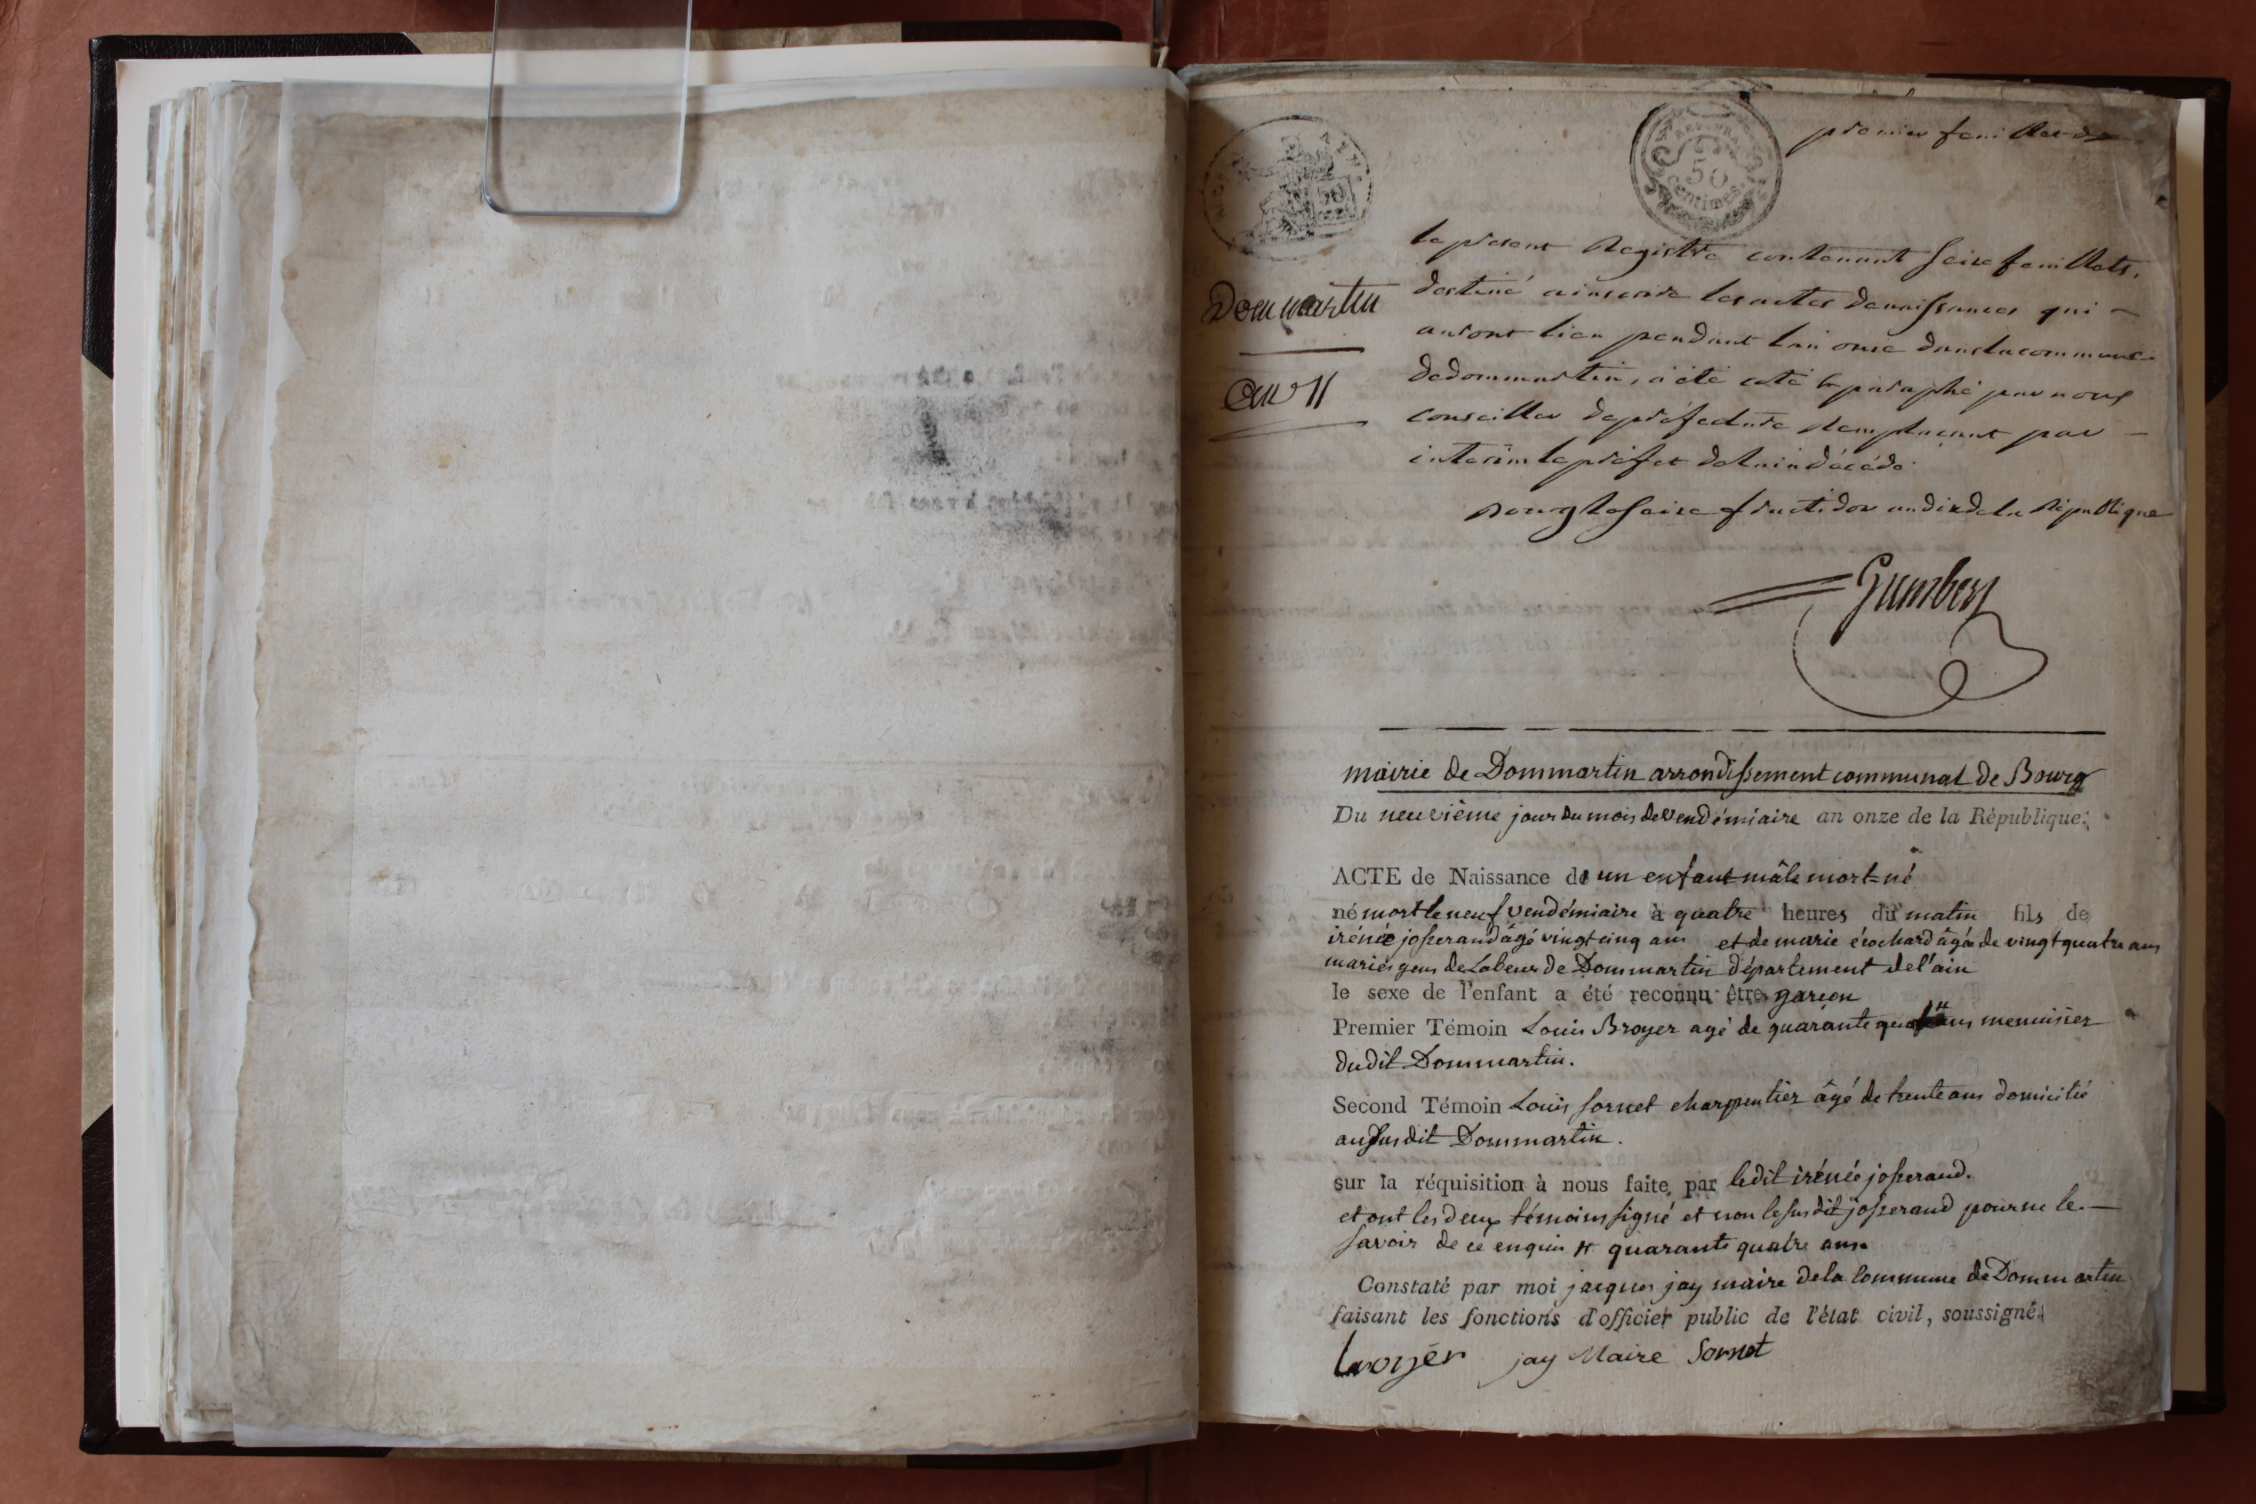 premier feuillet
REP. FRA.
50
Centimes.
le présent Registre contenant seize feuillets,
Dommartin
destiné a inscrire les actes de naissances qui
auront lieu pendant l'an onze dans la commune
an 11
de dommartin, a été coté & paraphé par nous
conseiller de préfecture remplaçant par
interim le préfet de l'ain décédé.
Bourg le seize fructidor an dix de la République
mairie de Dommartin arrondissement communal de Bourg
Du neuvième jour du mois de vendémiaire an onze de la République;
ACTE de Naissance de un enfant mâle mort-né
né mort le neuf vendémiaire à quatre heures du matin fils de
irénée josserand âgé vingt cinq ans et de marie écochard âgée de vingt quatre ans
mariés gens de Labeur de Dommartin département de l'ain
le sexe de l'enfant a été reconnu être garçon
Premier Témoin Louis Broyer agé de quarante ans menuisier
du dit Dommartin.
Second Témoin Louis sornet charpentier âgé de trente ans domicilié
au susdit Dommartin.
sur la réquisition à nous faite par ledit irénée josserand.
et ont les deux témoins signé et non le susdit josserand pour ne le
savoir de ce enquis # quarante quatre ans
Constaté par moi jacques jay maire de la Commune de Dommartin
faisant les fonctions d'officier public de l'état civil, soussigné.
broyer jay Maire Sornet